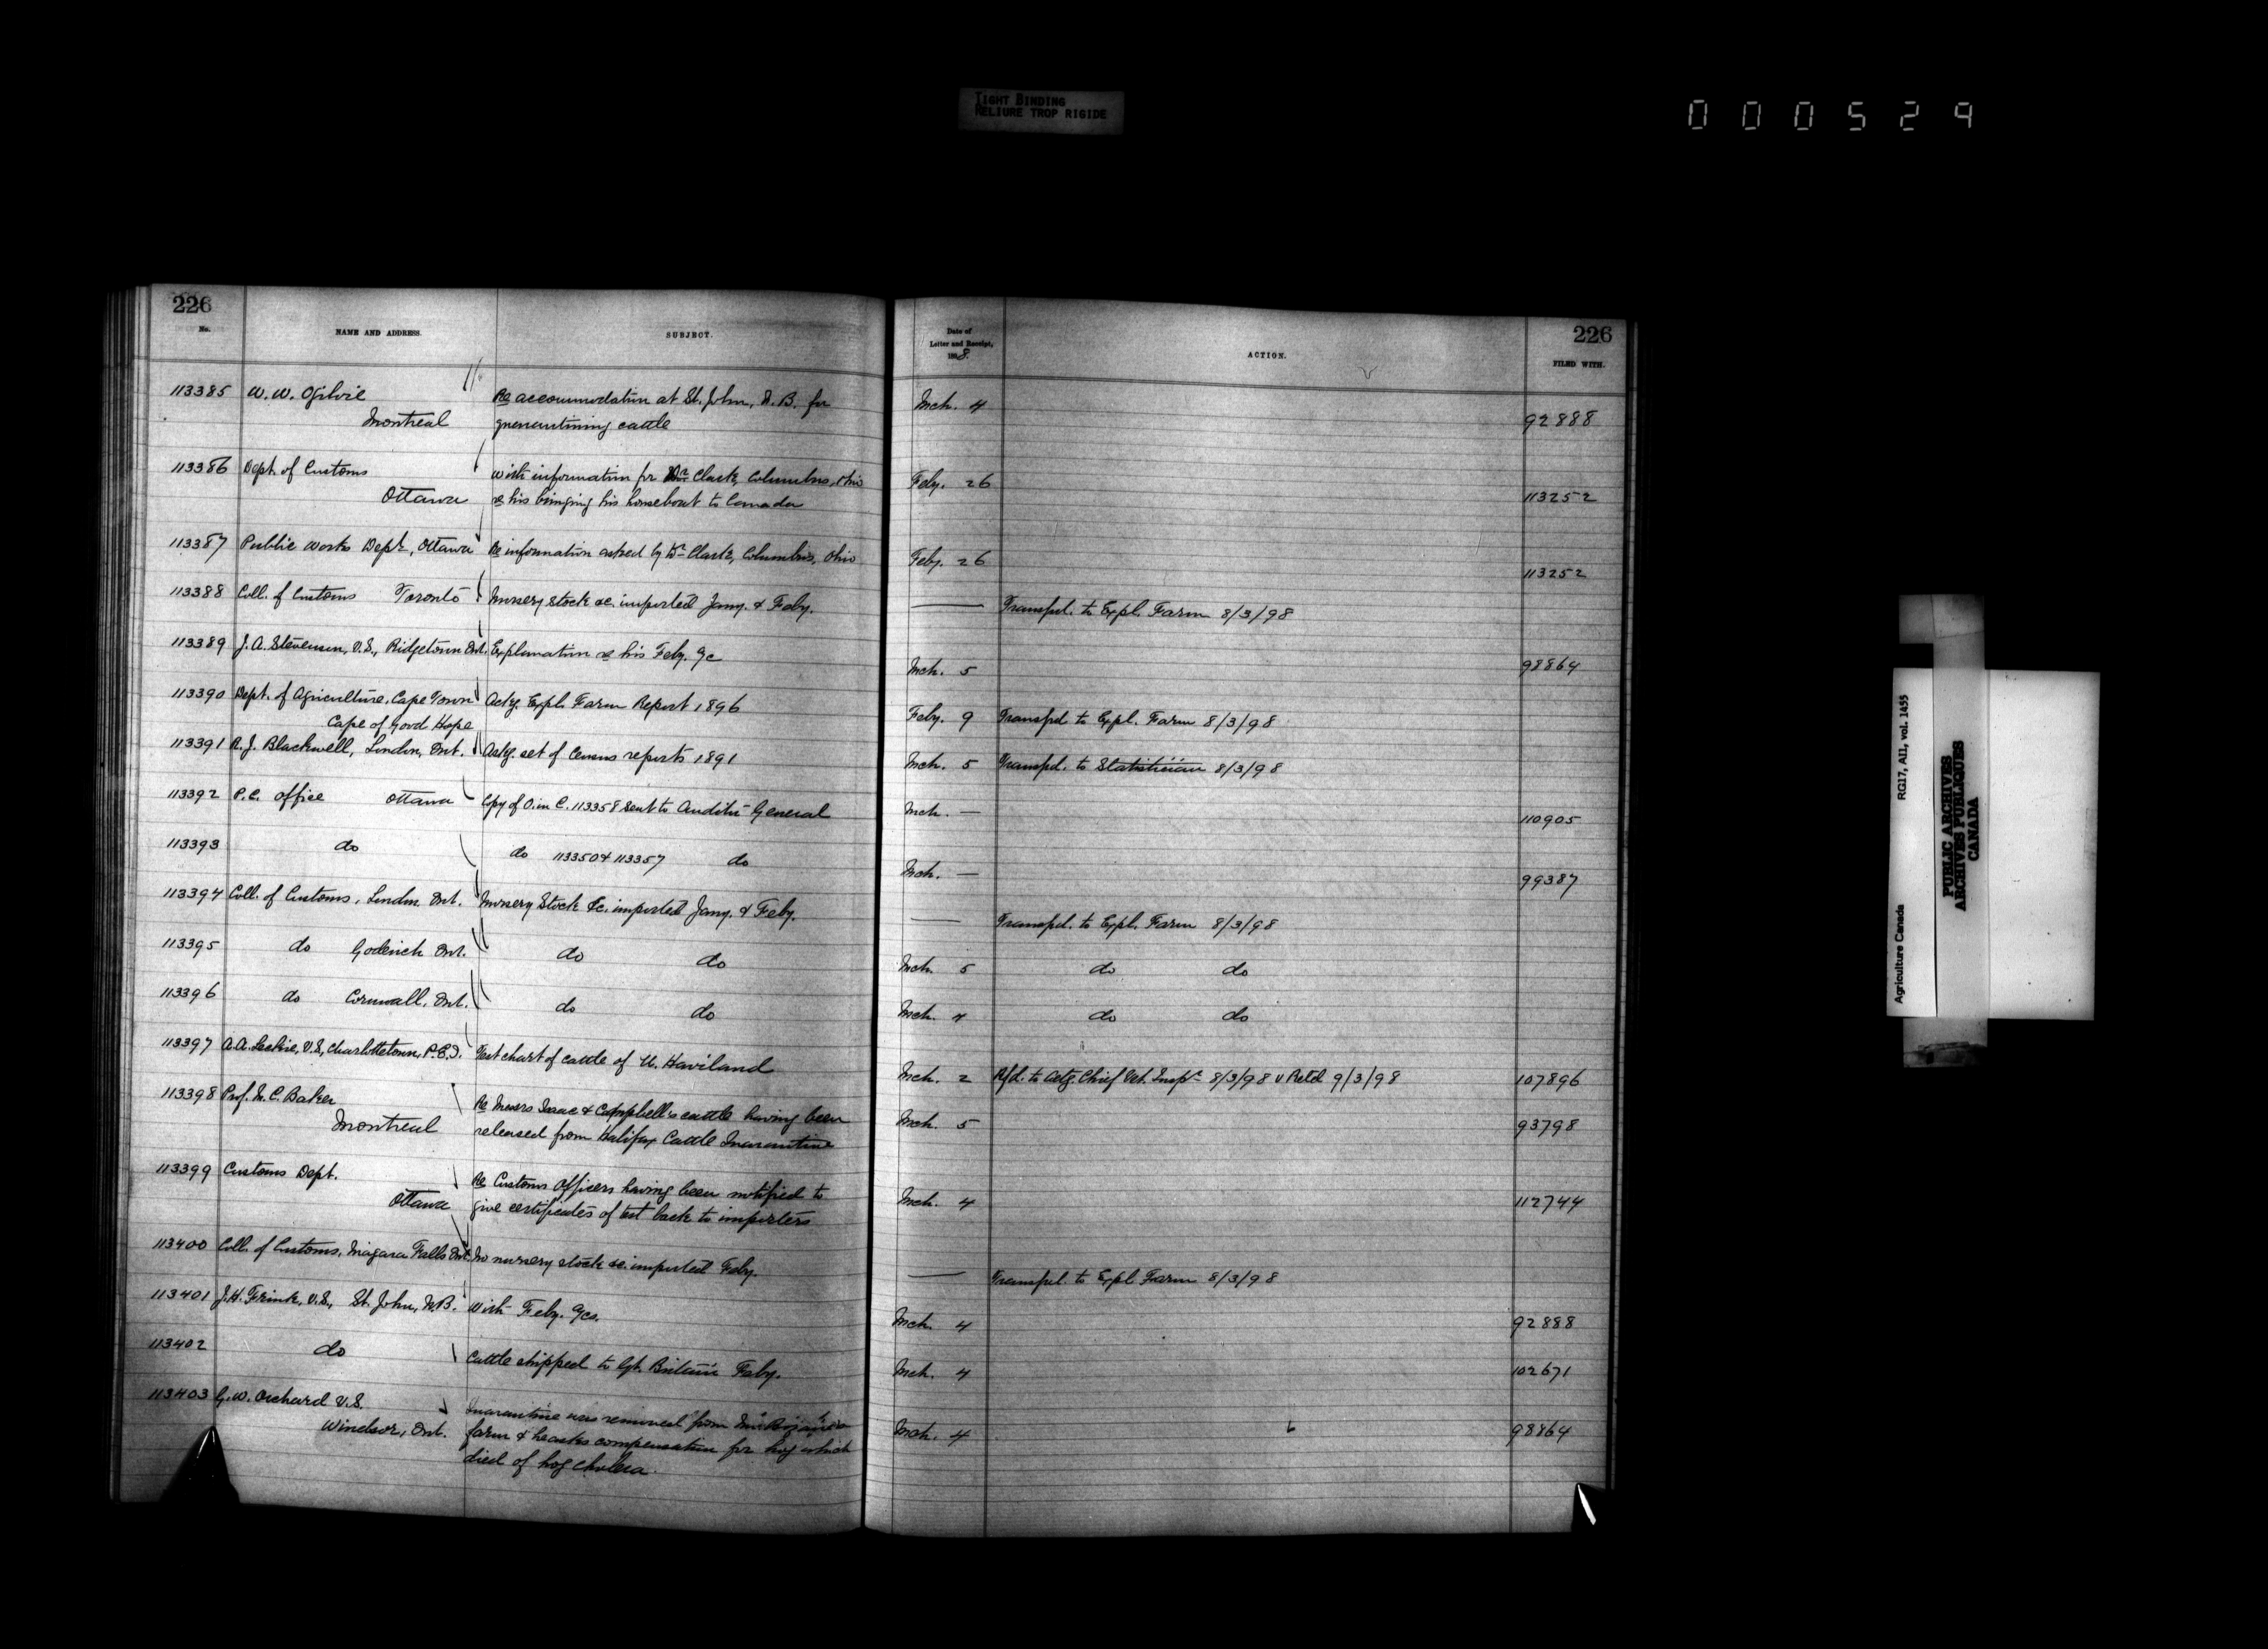 TIGHT BINDING
RELIURE TROP RIGIDE
000529
226
No.
NAME AND ADDRESS.
SUBJECT.
113385 W. W. Ogilvie
Montreal
Re accommodation at St. John, N. B. for
quarantining cattle
113386 Dept. of Customs
Ottawa
With information for Dr. Clark, Columbus, Ohio
re his bringing his houseboat to Canada
113387 Public Works Dept., Ottawa Re information asked by Dr. Clark, Columbus, Ohio
113388 Coll. of Customs Toronto Nursery stock &c. imported Jany. & Feby.
113389 J. A. Stevenson, V.S., Ridgetown Ont. Explanation re his Feby. %c
113390 Dept. of Agriculture, Cape Town Ackg. Expl. Farm Report 1896
Cape of Good Hope
113391 R. J. Blackwell, London, Ont. Askg. set of Census reports 1891
113392 P.C. Office Ottawa Copy of O. in C. 113358 sent to Auditor General
113393 do do 113350 & 113357 do
113394 Coll. of Customs, London Ont. Nursery Stock &c. imported Jany. & Feby.
113395 do Goderich Ont. do do
113396 do Cornwall, Ont. do do
113397 A.A. Leckie, V.S, Charlottetown, P.E.I. Test chart of cattle of Haviland
113398 Prof. M. C. Baker
Montreal
Re Messrs Isaac & Campbell's cattle having been
released from Halifax Cattle Quarantine
113399 Customs Dept.
Ottawa
Re Customs Officers having been notified to
give certificates of test back to importers
113400 Coll. of Customs, Niagara Falls Ont. No nursery stock &c. imported Feby.
113401 J. H. Frink, V.S., St. John, N.B. With Feby. %cs.
113402 do Cattle shipped to Gt. Britain Feby.
113403 G. W. Orchard V.S.
Windsor, Ont.
Quarantine was removed from
farm & he asks compensation for hog which
died of hog cholera.
226
Date of
Letter and Receipt,
1898.
ACTION.
FILED WITH.
Mch. 4 92888
Feby. 26 113252
Feby. 26 113252
— Transfd. to Expl. Farm 8/3/98
Mch. 5 98864
Feby. 9 Transfd. to Expl. Farm 8/3/98
Mch. 5 Transfd. to Statistician 8/3/98
Mch. — 110905
Mch. — 99387
— Transfd. to Expl. Farm 8/3/98
Mch. 5 do do
Mch. 4 do do
Mch. 2 Rfd. to Actg. Chief Vet. Inspr. 8/3/98 v Retd 9/3/98 107896
Mch. 5 93798
Mch. 4 112744
— Transfd. to Expl. Farm 8/3/98
Mch. 4 92888
Mch. 4 102671
Mch. 4 98864
Agriculture Canada RG17, AII1, vol. 1455
PUBLIC ARCHIVES
ARCHIVES PUBLIQUES
CANADA